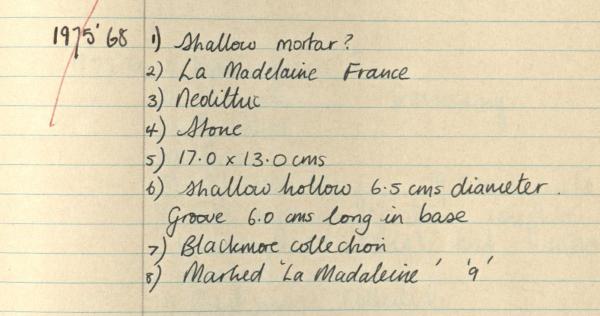 1975'68 1) Shallow mortar?
2) La Madelaine France
3) Neolithic
4) Stone
5) 17.0 x 13.0 cms
6) Shallow hollow 6.5 cms diameter.
Groove 6.0 cms long in base
7) Blackmore collection
8) Marked 'La Madaleine' '9'